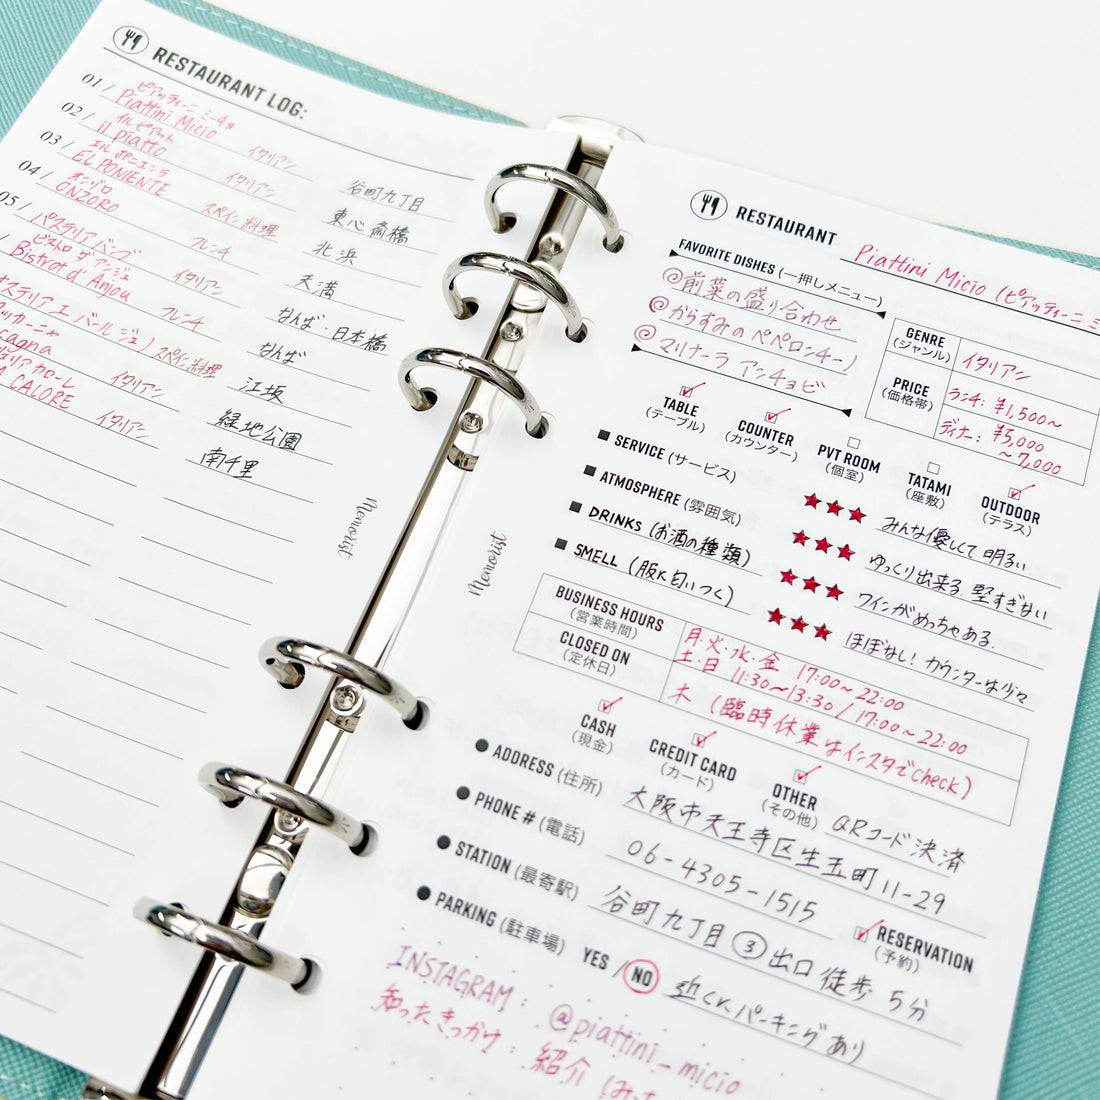 RESTAURANT LOG:
01/ ピアッティーニ ミーチョ
Piattini Micio イタリアン 谷町九丁目
02/ イル ピアット
il piatto イタリアン 東心斎橋
03/ エル ポニエンテ
EL PONIENTE スペイン料理 北浜
04/ オンゾロ
ONZORO フレンチ 天満
05/ パステリアバーブ イタリアン なんば・日本橋
ビストロ ダ アンジュ
Bistrot d' Anjou フレンチ なんば
スペイン料理 江坂
イタリアン 緑地公園
CALORE イタリアン 南千里
Memorist
Memorist
RESTAURANT Piattini Micio (ピアッティーニ ミ
FAVORITE DISHES (一押しメニュー)
@前菜の盛り合わせ
@からすみのペペロンチーノ
@マリナーラ アンチョビ
GENRE
(ジャンル) イタリアン
PRICE
(価格帯) ランチ: ¥1,500~
ディナー: ¥5,000
~7,000
TABLE
(テーブル)
COUNTER
(カウンター)
PVT ROOM
(個室)
TATAMI
(座敷)
OUTDOOR
(テラス)
SERVICE (サービス) ★★★ みんな優しくて明るい
ATMOSPHERE (雰囲気) ★★★ ゆっくり出来る 堅すぎない
DRINKS (お酒の種類) ★★★ ワインがめっちゃある
SMELL (服に匂いつく) ★★★ ほぼなし! カウンターは少々
BUSINESS HOURS
(営業時間) 月・火・水・金 17:00~22:00
土・日 11:30~13:30 / 17:00~22:00
CLOSED ON
(定休日) 木 (臨時休業はインスタでcheck)
CASH
(現金)
CREDIT CARD
(カード)
OTHER
(その他) QRコード決済
ADDRESS (住所) 大阪市天王寺区生玉町11-29
PHONE # (電話) 06-4305-1515
STATION (最寄駅) 谷町九丁目③出口 徒歩5分
RESERVATION
(予約)
PARKING (駐車場) YES / NO 近くにパーキングあり
INSTAGRAM: @piattini_micio
知ったきっかけ: 紹介